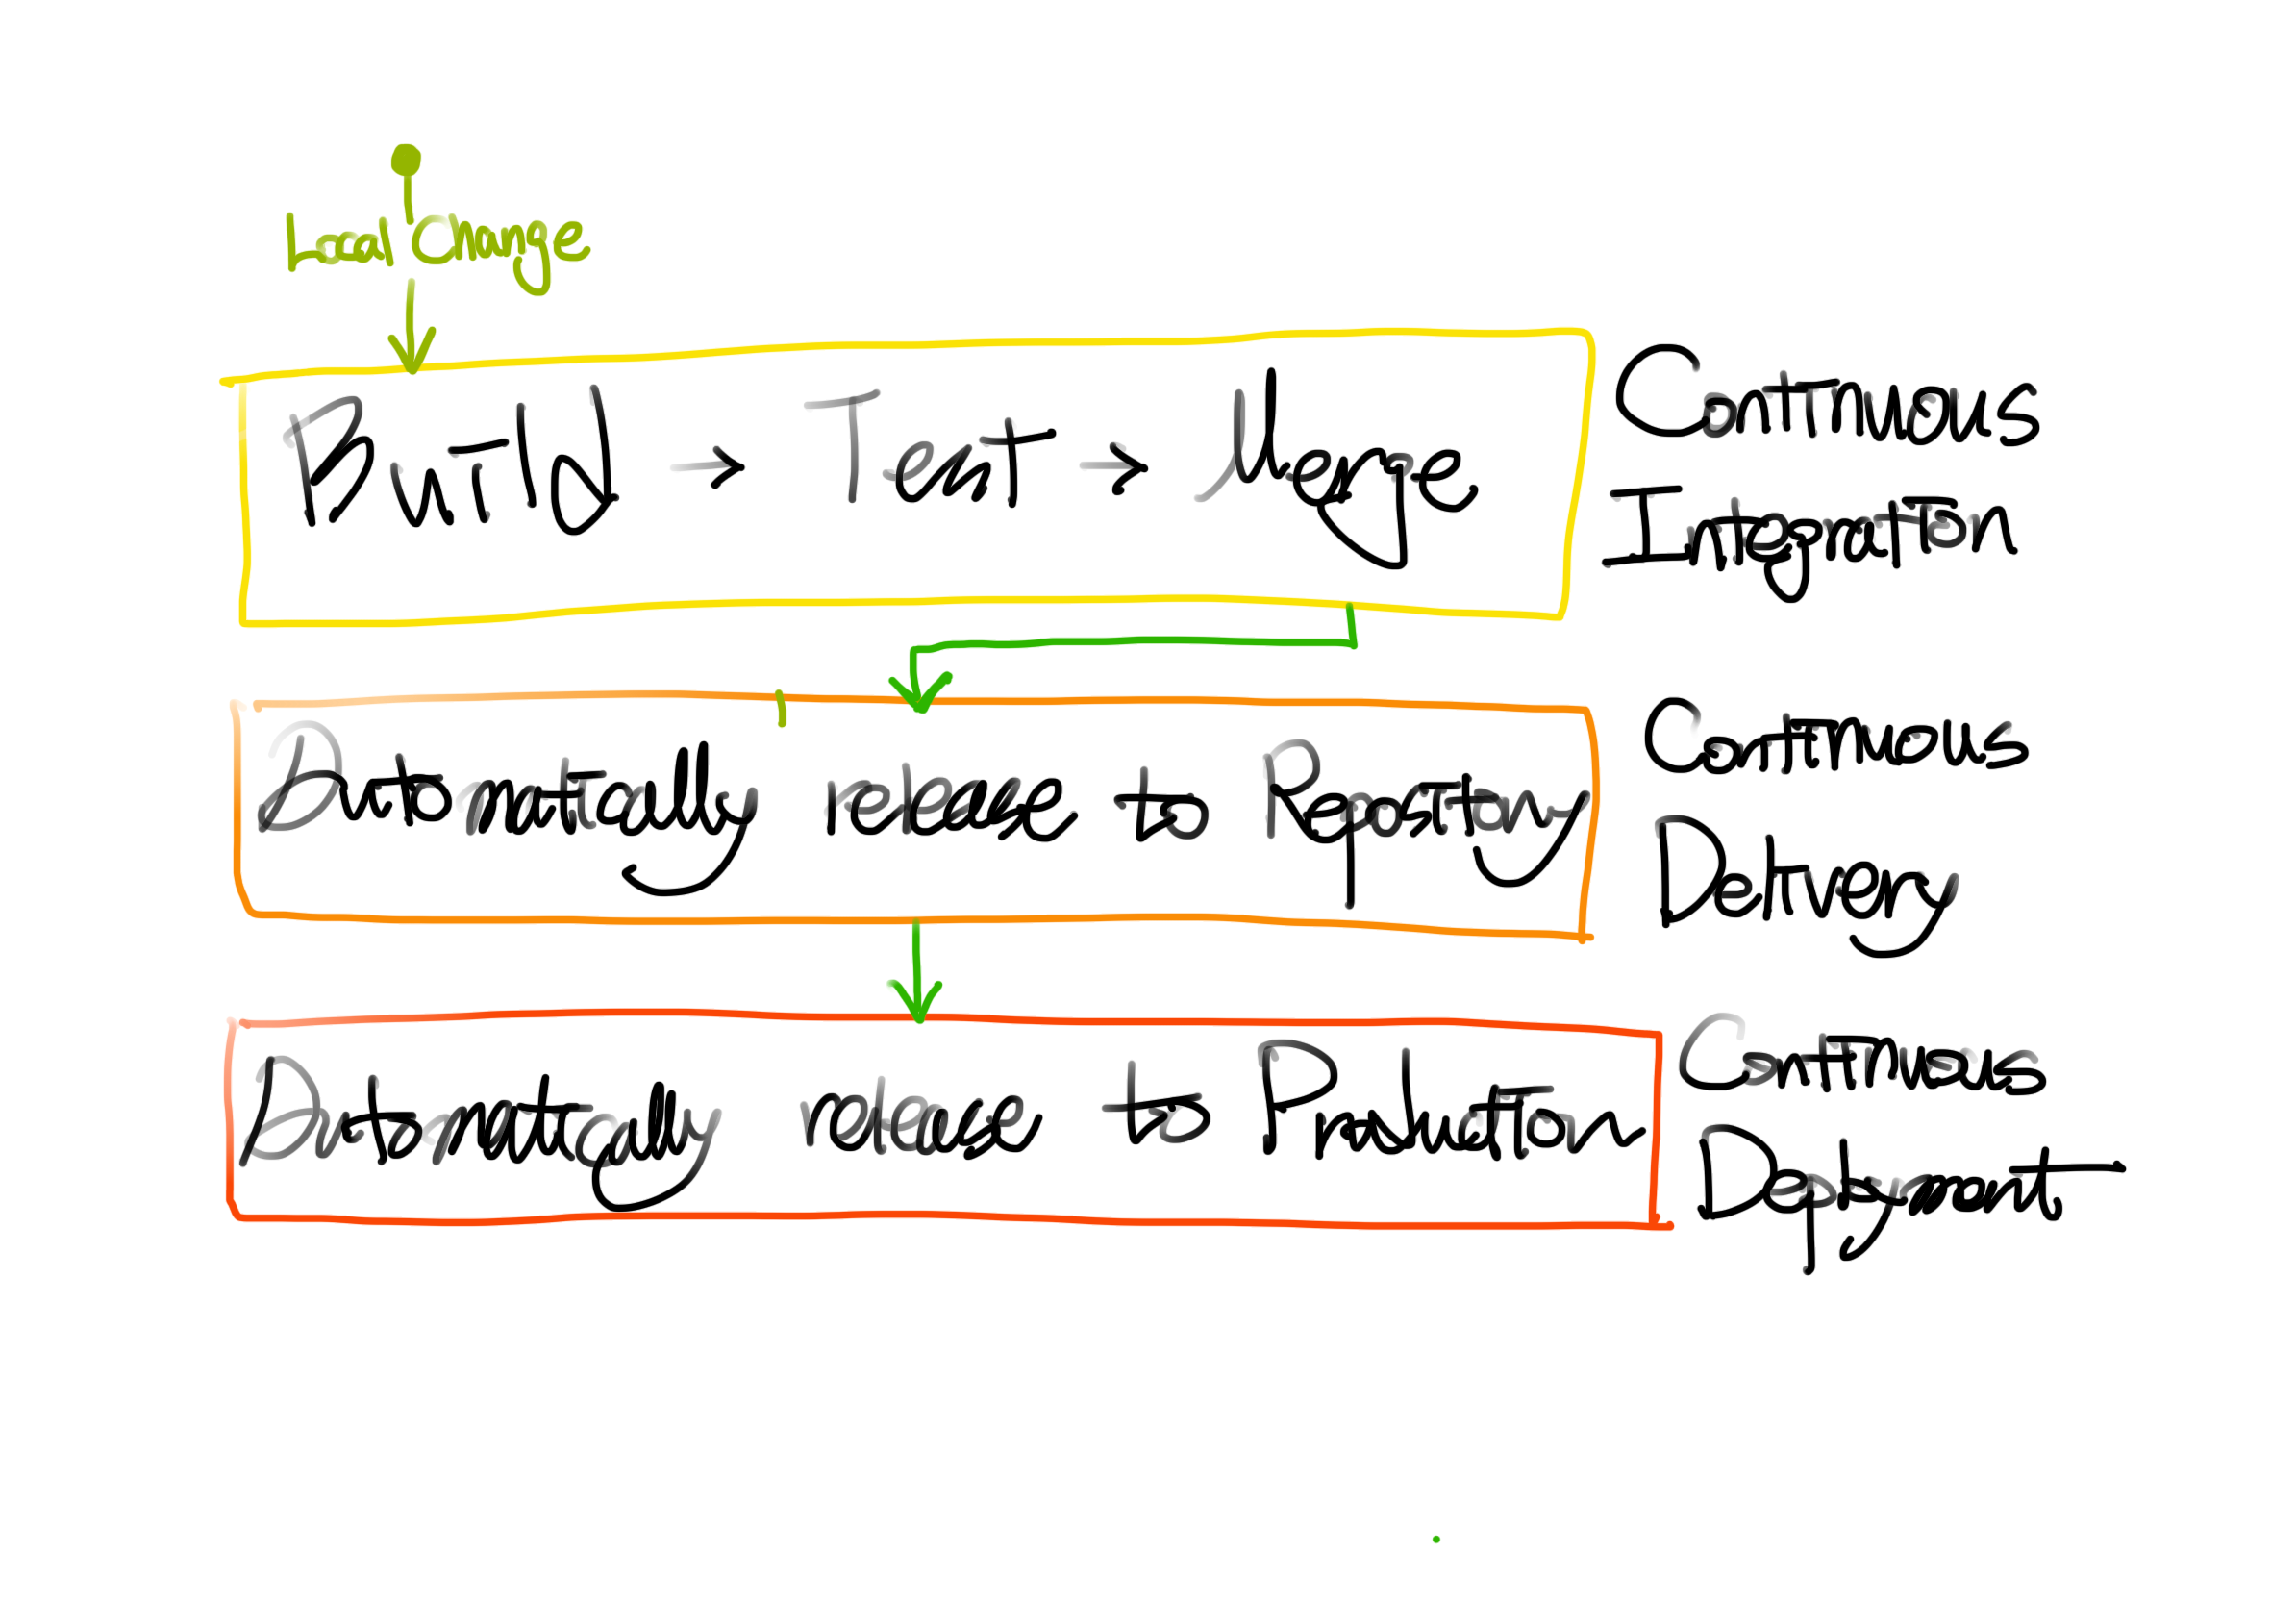 Local Change
Build → Test → Merge
Continuous
Integration
Automatically release to Repository
Continuous
Delivery
Automatically release to Production
Continuous
Deployment